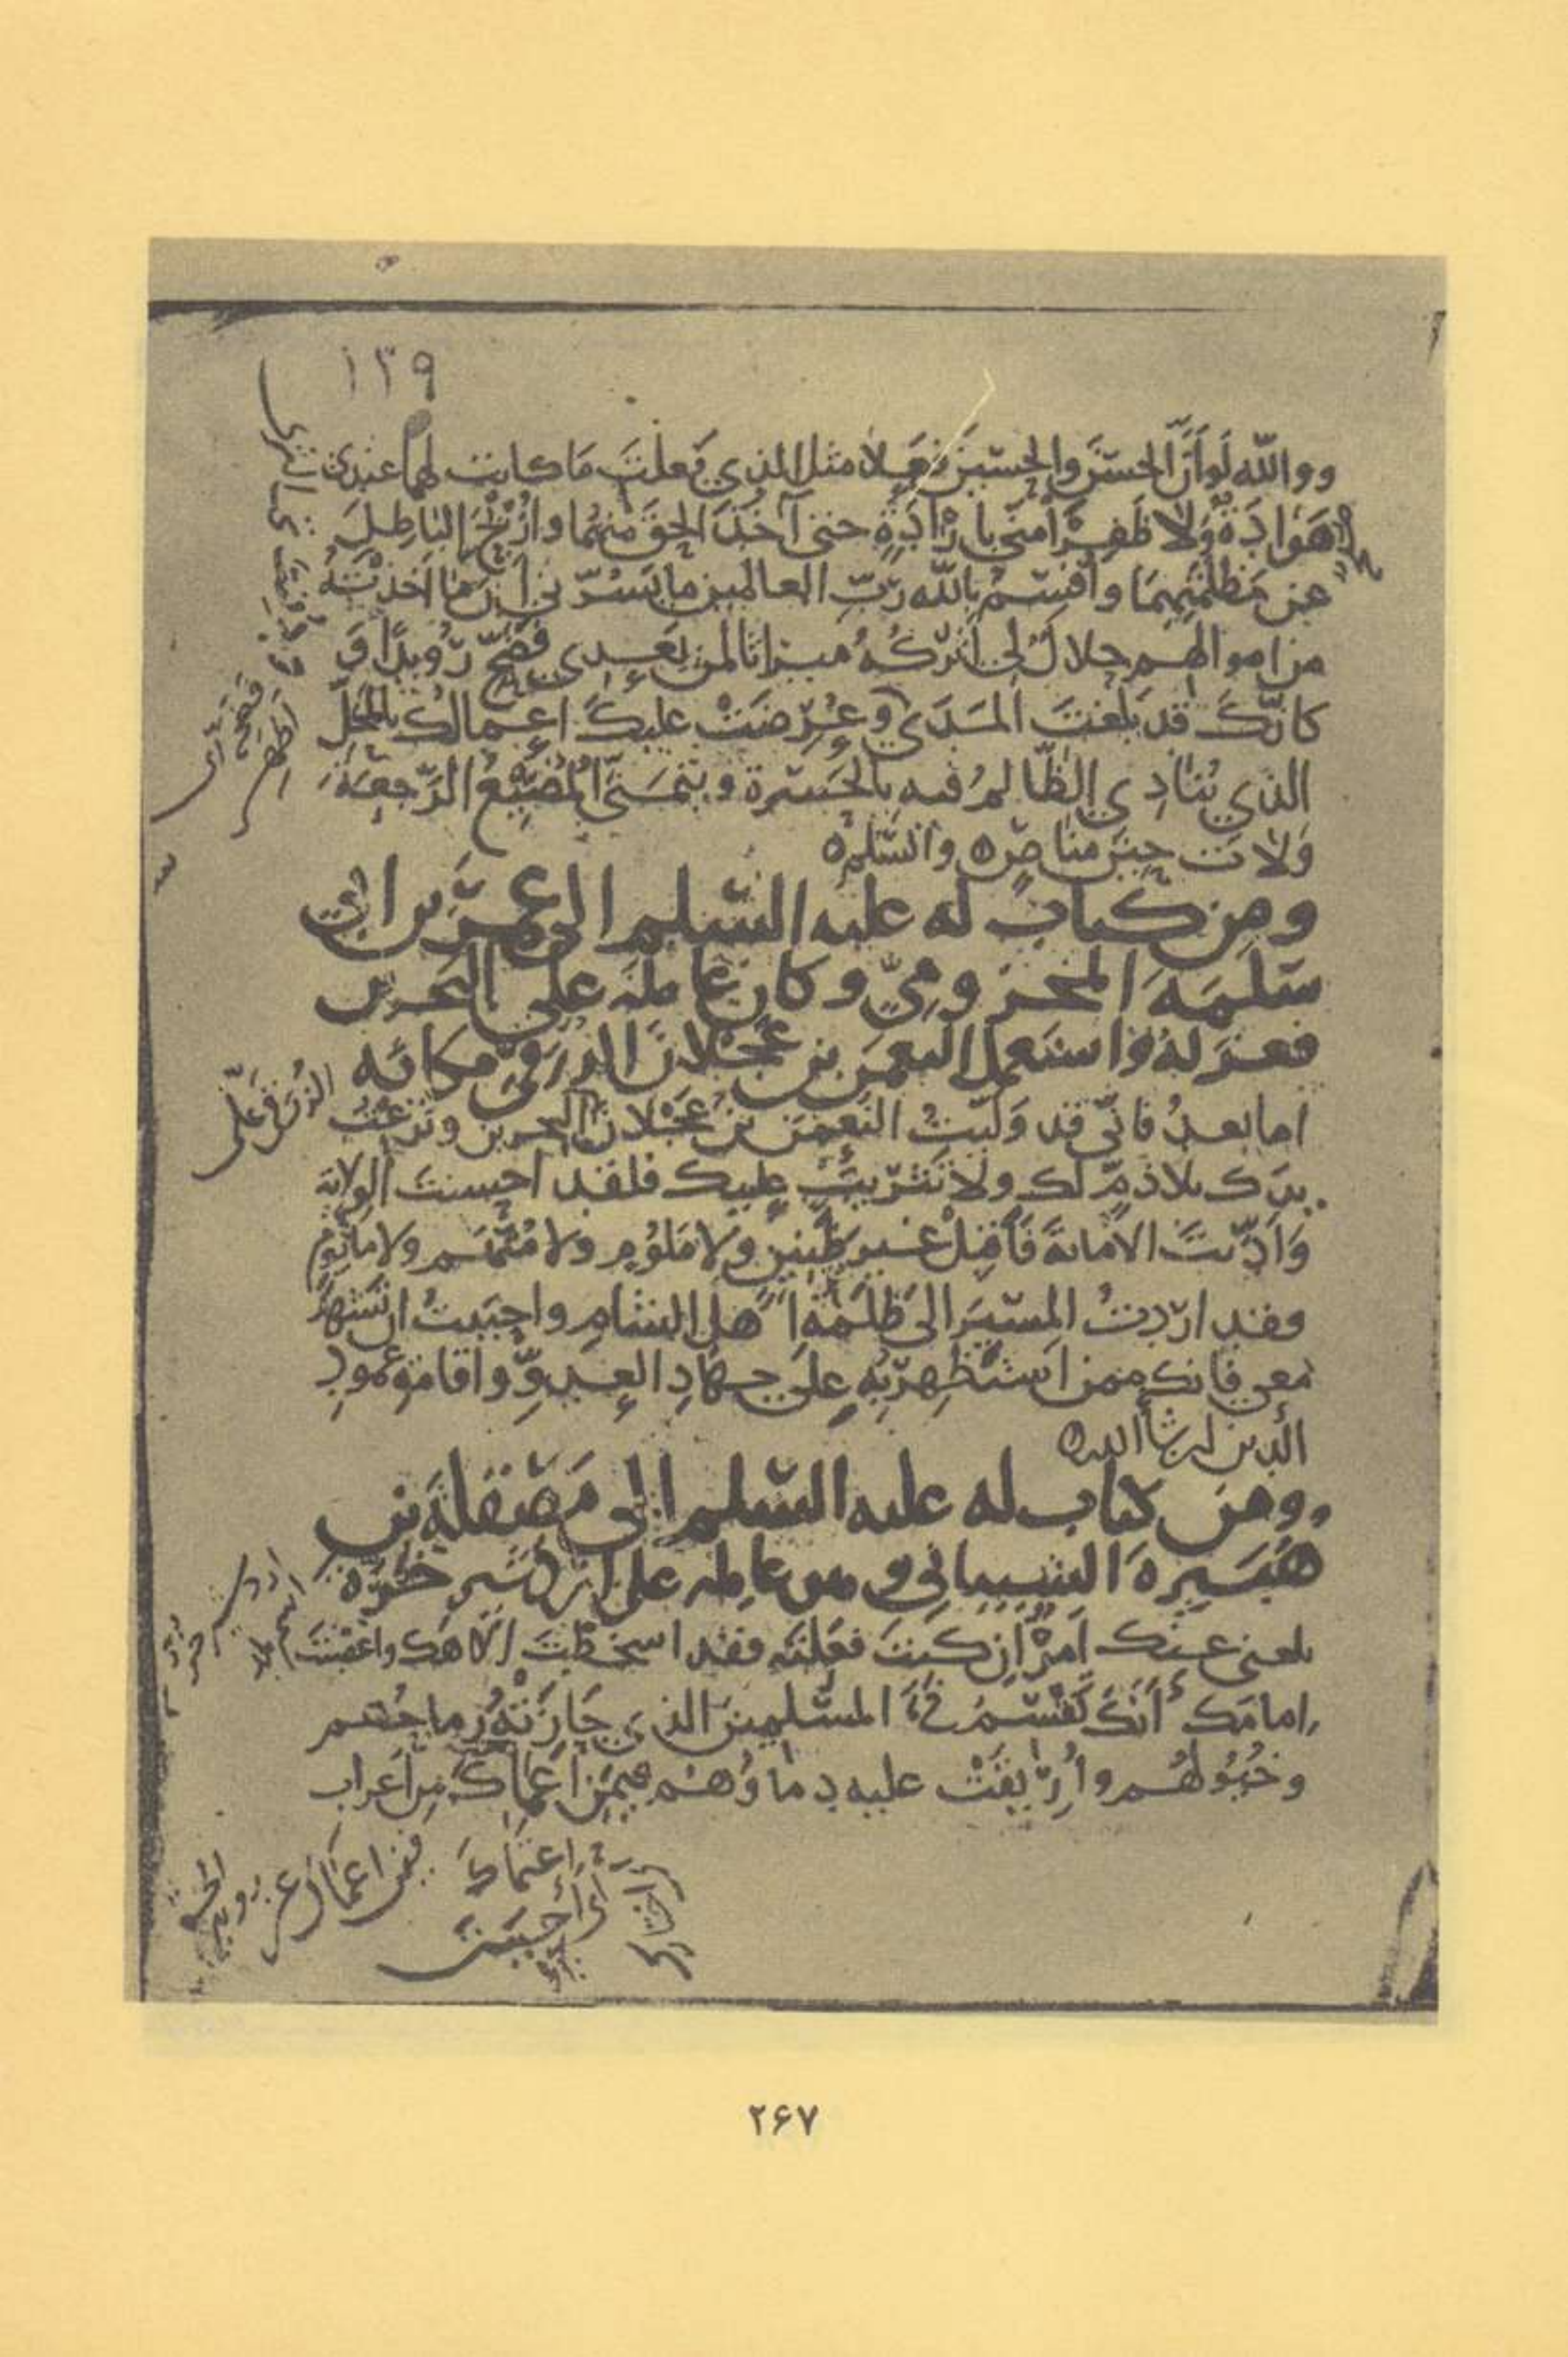 ١٣٩
ووالله لَو أَنَّ الحسَنَ والحُسَينَ فَعَلا مثل الذي فَعلتَ مَا كانت لهما عندي
هَوَادَةٌ وَلا ظَفِرَا مِنّي بارَادَةٍ حتى آخُذَ الحقَ منهُما وازيحَ الباطِلَ
عن مَظلَمَتِهِمَا وأُقسِمُ بالله رَبِّ العالمين ما يَسُرّني أنّ ما أخذتَهُ
من اموالهم حلالٌ لي أَتركُهُ ميراثا لمن بَعدي فَضَحِّ رُوَيداً فَ
كانّكَ قد بَلغتَ المَدَى وعُرِضَتْ عليكَ اعمالك بالمَحَلِّ
الذي يُنَادِي الظّالمُ فيه بالحَسْرة ويتمنَّى المُضَيِّعُ الرَّجعَةَ
وَلاتَ حِينَ مناصٍ ٥ والسَّلم ٥
ومن كتاب له عليه السَّلم الى عُمَرَ بن ابي
سَلَمَةَ المخزوميِّ وكان عامله على البحرين
فعزله واستعمل النعمن بن عَجْلانَ الزُرَقيّ مكانه
اما بعدُ فانّى قد وَلّيتُ النُعمٰنَ بنَ عَجْلانَ البحرين ونزعتُ
يدَك بلا ذمٍّ لك ولا تَثريبٍ عليك فلقد احسنت الولاية
وَأدّيتَ الأمانةَ فَأقبِلْ غير ظَنِينٍ ولا مَلُومٍ ولا مُتَّهَم ولا ماثومٍ
وفقد اردتُ المسيرَ الى ظَلَمَةِ أهل الشام واحببتُ ان تشهدَ
معى فانك ممن استظهِرُ بِهِ على جهادِ العدوِّ واقامة عمودِ
الدين ان شاء الله ٥
ومن كتاب له عليه السَّلم الى مَصْقَلَةَ بن
هُبَيرةَ الشيباني وهو عامله على اردشير خُرّه
بلغنى عنك امرٌ ان كنتَ فعلتَه فقد اسخطتَ إلاهك واغضبتَ
امامك أنّكَ تَقسِمُ فَيءَ المسلمين الذي حَازَتْهُ رماحُهم
وخُيُولهُم وأُرِيقَتْ عليه دماؤُهُم فيمَن اعتماكَ من أعراب
الزُرَقي
اعتماكَ
أى
فيمن اعتماك
٢۶٧